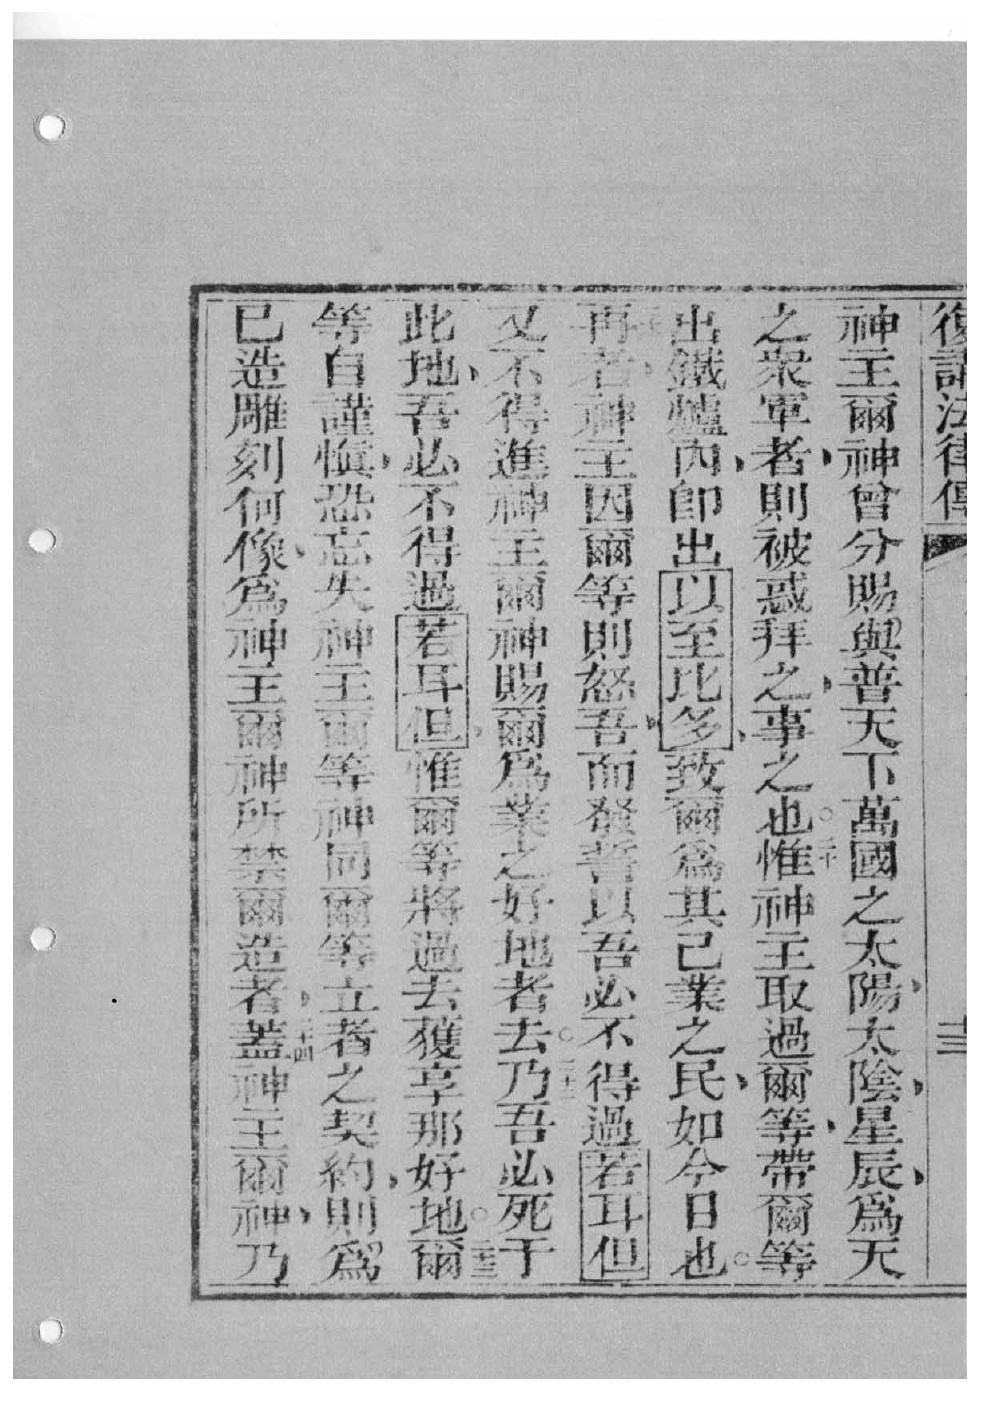 復講法律傳 十三
神主爾神曾分賜與普天下萬國之太陽太陰星辰爲天
之衆軍者則被惑拜之事之也二十惟神主取過爾等帶爾等
出鐵爐內卽出以至比多致爾爲其己業之民如今日也
再者神主因爾等則怒吾而發誓以吾必不得過若耳但
又不得進神主爾神賜爾爲業之好地者去二十二乃吾必死于
此地吾必不得過若耳但惟爾等將過去獲享那好地二十三爾
等自謹愼恐忘失神主爾等神同爾等立者之契約則爲
已造雕刻何像爲神主爾神所禁爾造者二十四蓋神主爾神乃